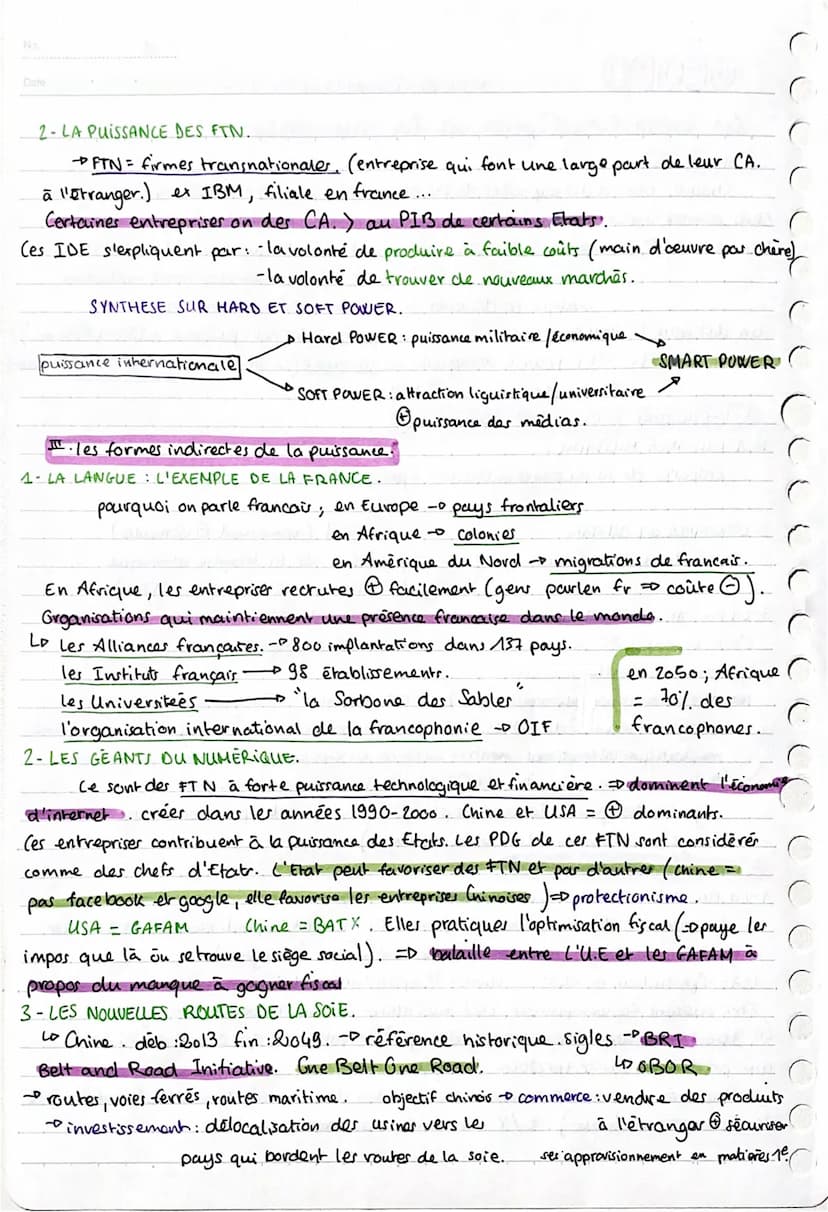 No.
Date
2- LA PUISSANCE DES FTN.
→ FTN = firmes transnationales. (entreprise qui font une large part de leur CA.
à l'étranger.) ex IBM, filiale en france ...
Certaines entreprises on des CA. > au PIB de certains Etats.
Ces IDE s'expliquent par : - la volonté de produire à faible coûts (main d'oeuvre pas chère)
- la volonté de trouver de nouveaux marchés.
SYNTHESE SUR HARD ET SOFT POWER.
Hard POWER : puissance militaire / économique
puissance internationale
SMART POWER
SOFT POWER : attraction liguistique / universitaire
⊕ puissance des médias.
III - les formes indirectes de la puissance.
1- LA LANGUE : L'EXEMPLE DE LA FRANCE.
pourquoi on parle francais ; en Europe → pays frontaliers
en Afrique → colonies
en Amérique du Nord → migrations de francais.
En Afrique, les entreprises recrutes ⊕ facilement (gens parlen fr ⇒ coûte ⊖).
Organisations qui maintiennent une présence francaise dans le monde.
↳ Les Alliances françaises. → 800 implantations dans 137 pays.
les Instituts français → 98 établissements.
en 2050 ; Afrique
les Universiteés → "la Sorbone des Sables"
= 70% des
l'organisation international de la francophonie → OIF
francophones.
2- LES GÉANTS DU NUMÉRIQUE.
Ce sont des FTN à forte puissance technologique et financière. ⇒ dominent l'économie
d'internet. crées dans les années 1990-2000. Chine et USA = ⊕ dominants.
Ces entreprises contribuent à la puissance des Etats. Les PDG de ces FTN sont considérér
comme des chefs d'Etats. L'Etat peut favoriser des FTN et pas d'autres (chine =
pas facebook et google, elle favorise les entreprises Chinoises) ⇒ protectionisme.
USA = GAFAM Chine = BATX. Elles pratiques l'optimisation fiscal (→ paye les
impos que là öu se trouve le siège social). ⇒ bataille entre L'U.E et les GAFAM à
propos du manque à gagner fiscal
3 - LES NOUVELLES ROUTES DE LA SOIE.
↳ Chine. déb : 2013 fin : 2049. → référence historique. sigles → BRI
Belt and Road Initiative. One Belt One Road. ↳ OBOR.
→ routes, voies ferrés, routes maritime. objectif chinois → commerce : vendre des produits
→ investissement : délocalisation des usines vers les à l'étranger ⊕ sécuriser
pays qui bordent les routes de la soie. ses approvisionnement en matières 1e.